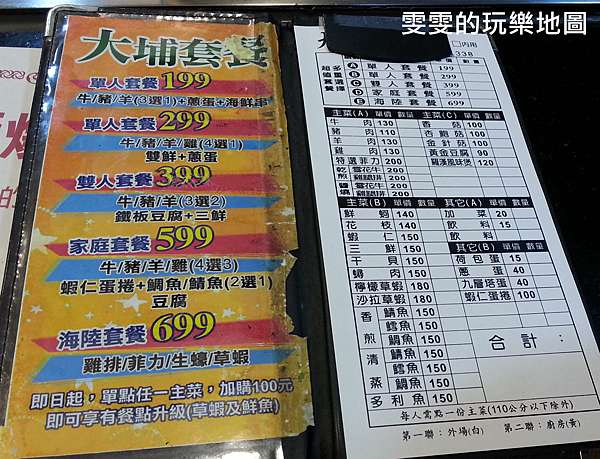 雯雯的玩樂地圖
大埔套餐
單人套餐199
牛/豬/羊(3選1)+蔥蛋+海鮮串
單人套餐299
牛/豬/羊/雞(4選1)
雙鮮+蔥蛋
雙人套餐399
牛/豬/羊(3選2)
鐵板豆腐+三鮮
家庭套餐599
牛/豬/羊/雞(4選3)
蝦仁蛋捲+鯛魚/鯖魚(2選1)
豆腐
海陸套餐699
雞排/菲力/生蠔/草蝦
即日起,單點任一主菜,加購100元
即可享有餐點升級(草蝦及鮮魚)
□內用
338
超值套餐 多重選擇
A 單人套餐 199
B 單人套餐 299
C 雙人套餐 399
D 家庭套餐 599
E 海陸套餐 699
主菜(A) 單價 數量 主菜(C) 單價 數量
牛肉 130 香菇 90
豬肉 110 杏鮑菇 90
羊肉 130 金針菇 90
雞肉 130 黃金豆腐 90
特選菲力 200 羅漢風味煲 120
乾煎 雪花牛 200
雞腿排 200
鹽燒 雪花牛 200
雞腿排 200
主菜(B) 單價 數量 其它(A) 單價 數量
鮮蚵 140 加菜 20
花枝 140 飲料 15
蝦仁 150 飲料
三鮮 150 其它(B) 單價 數量
干貝 150 荷包蛋 15
蟳肉 150 蔥蛋 40
檸檬草蝦 180 九層塔蛋 40
沙拉草蝦 180 蝦仁蛋捲 100
香煎 鯖魚 150
鱈魚 150 合計:
鯛魚 150
清蒸 鯖魚 150
鱈魚 150
鯛魚 150
多利魚 150
每人需點一份主菜(110公分以下除外)
第一聯:外場(白) 第二聯:廚房(黃)